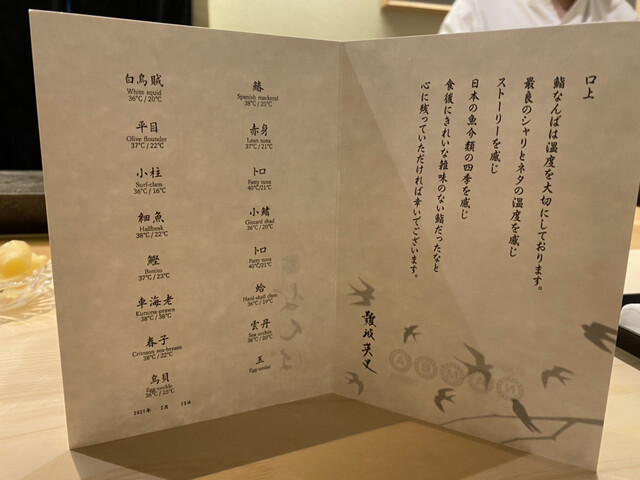 口上
鮨なんばは温度を大切にしております。
最良のシャリとネタの温度を感じ
ストーリーを感じ
日本の魚介類の四季を感じ
食後にきれいな雑味のない鮨だったなと
心に残っていただければ幸いでございます。
難波英史
NANBA
鰆
Spanish mackerel
38℃/21℃
赤身
Lean tuna
37℃/21℃
トロ
Fatty tuna
40℃/21℃
小鰭
Gizzard shad
36℃/20℃
トロ
Fatty tuna
40℃/21℃
蛤
Hard-shell clam
36℃/19℃
雲丹
Sea urchin
36℃/20℃
玉
Egg omlet
白烏賊
White squid
36℃/20℃
平目
Olive flounder
37℃/22℃
小柱
Surf-clam
36℃/16℃
細魚
Halfbeak
38℃/22℃
鰹
Bonito
37℃/23℃
車海老
Kuruma-prawn
38℃/38℃
春子
Crimson sea-bream
38℃/22℃
鳥貝
Egg cockle
36℃/15℃